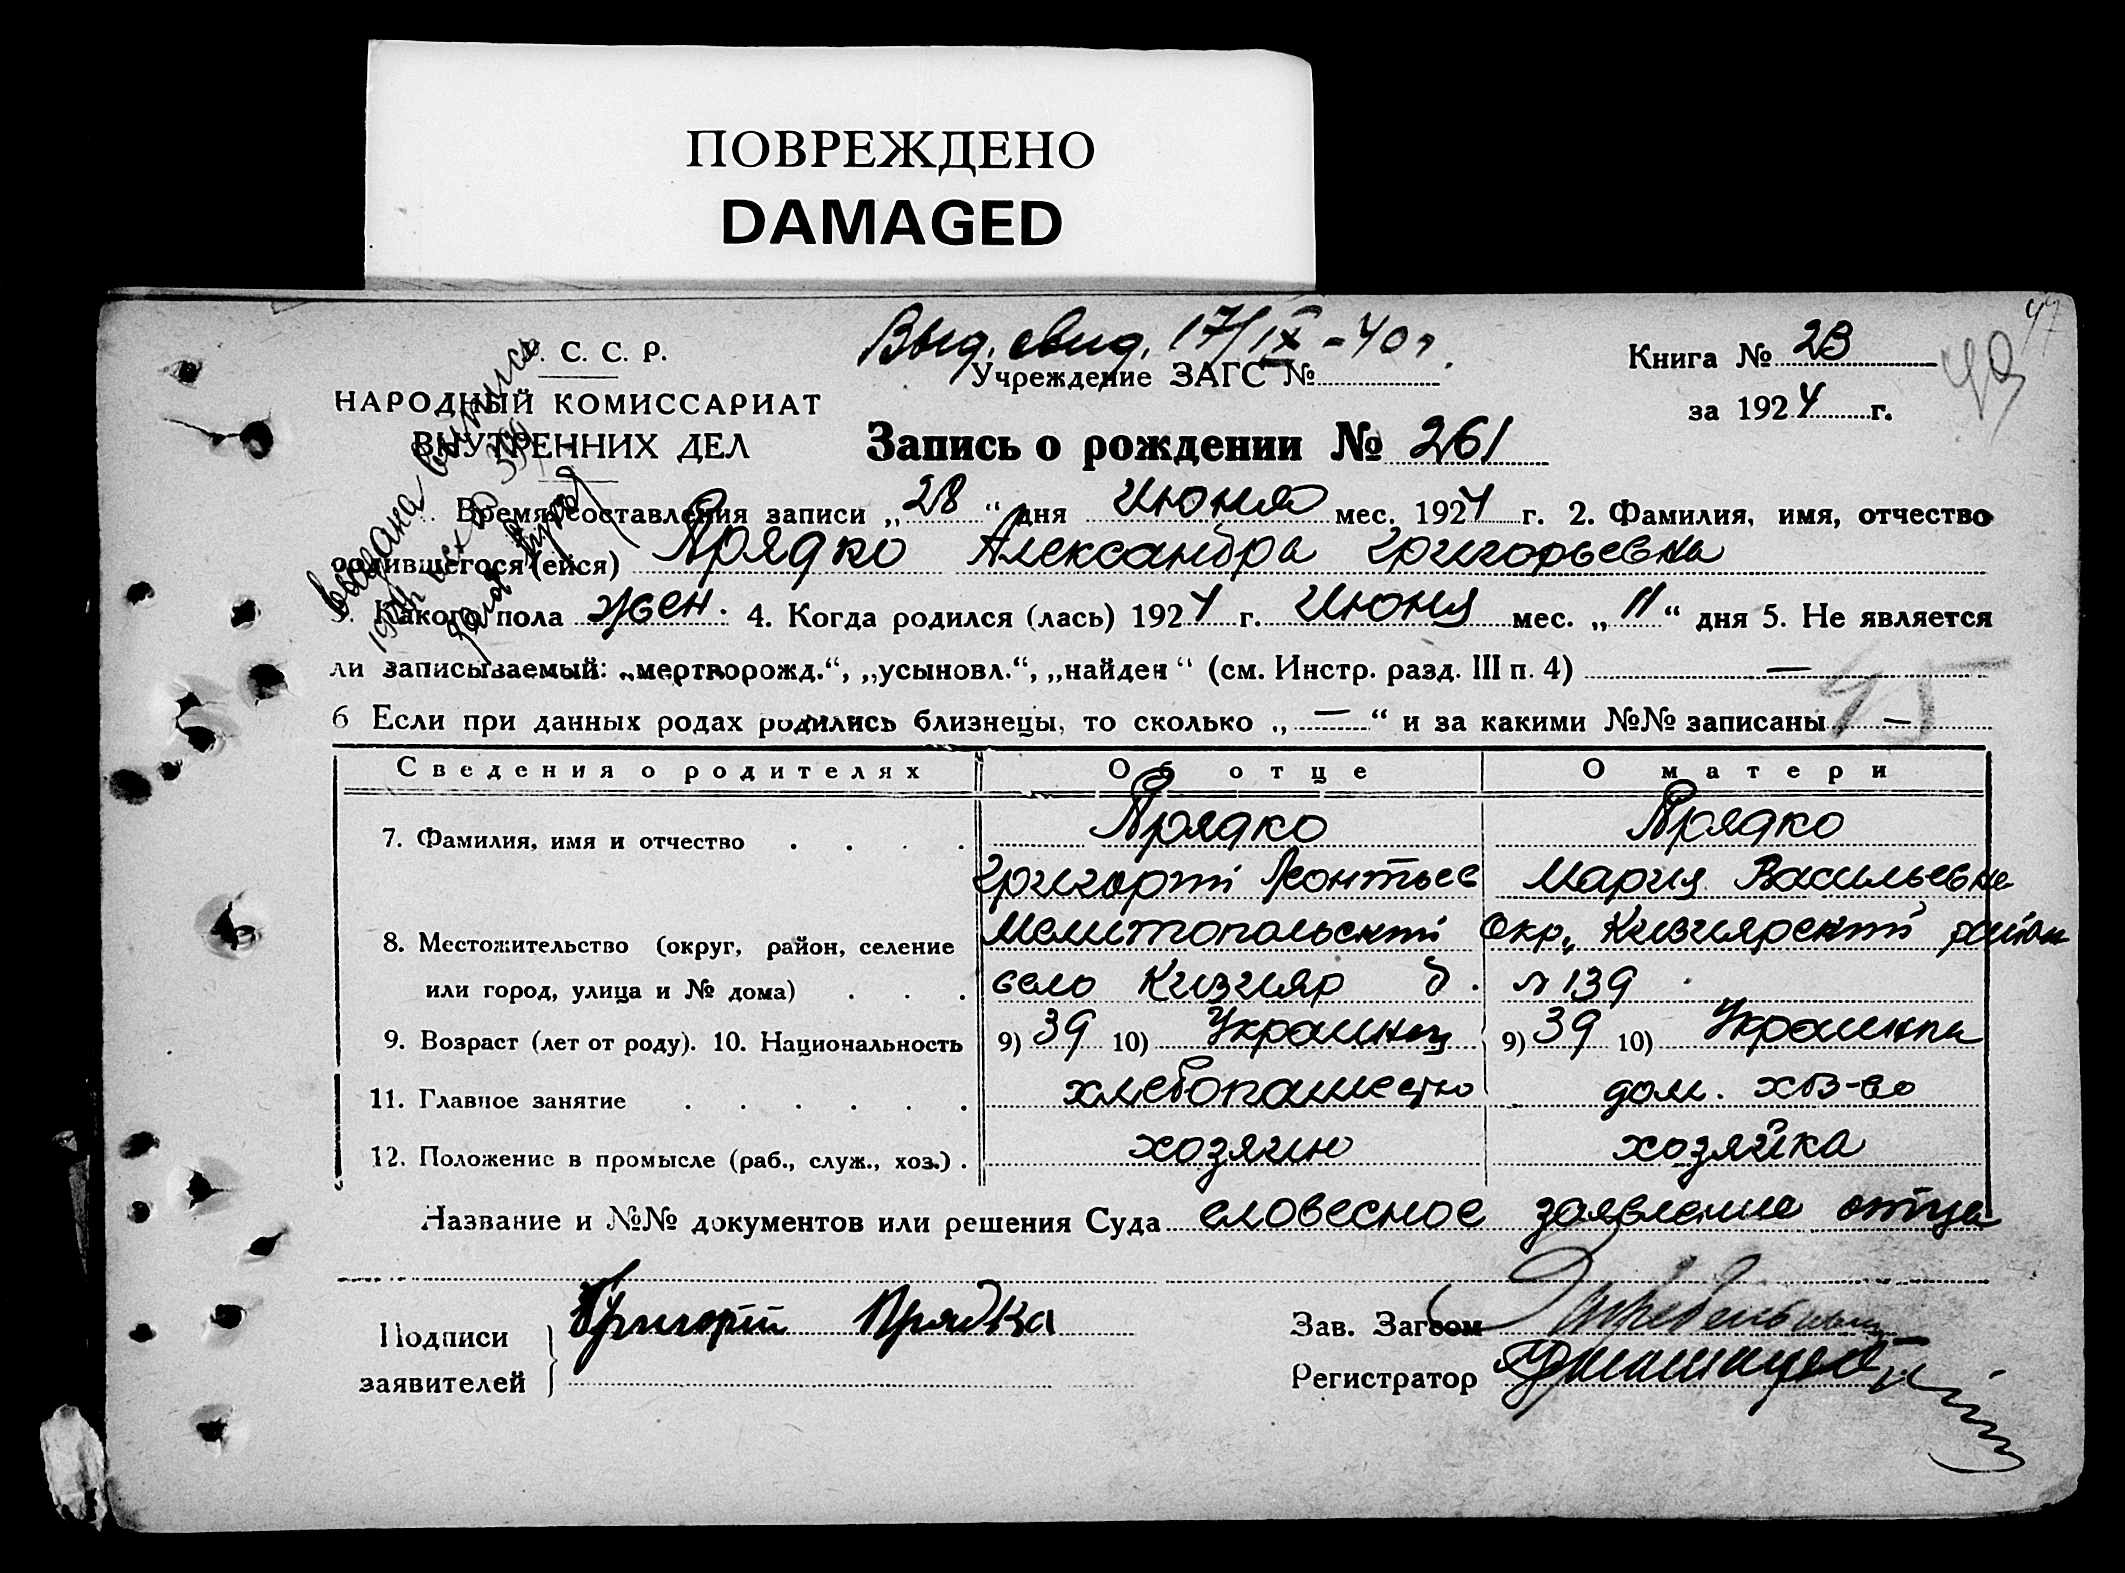 ПОВРЕЖДЕНО
DAMAGED
47
Выд. свид. 17/IX - 40 г.
С. С. Р.
Учреждение ЗАГС №
Книга № 23
НАРОДНЫЙ КОМИССАРИАТ
за 1924 г.
ВНУТРЕННИХ ДЕЛ
Запись о рождении № 261
выдана выпись
Время составления записи „28“ дня Июня мес. 1924 г. 2. Фамилия, имя, отчество
родившегося (ейся) Прядко Александра Григорьевна
3. Какого пола жен. 4. Когда родился (лась) 1924 г. Июня мес. „11“ дня 5. Не является
ли записываемый: „мертворожд.“, „усыновл.“, „найден“ (см. Инстр. разд. III п. 4) —
45
6 Если при данных родах родились близнецы, то сколько „—“ и за какими №№ записаны —
Сведения о родителях Об отце О матери
7. Фамилия, имя и отчество Прядко Прядко
Григорий Леонтьев Мария Васильевна
8. Местожительство (округ, район, селение Мелитопольский Окр., Кизиярский район
или город, улица и № дома) село Кизияр д. № 139
9. Возраст (лет от роду). 10. Национальность 9) 39 10) Украинец 9) 39 10) Украинка
11. Главное занятие хлебопашество дом. хоз-во
12. Положение в промысле (раб., служ., хоз.) хозяин хозяйка
Название и №№ документов или решения Суда словесное заявление отца
Подписи заявителей Григорий Прядка
Зав. Загсом
Регистратор